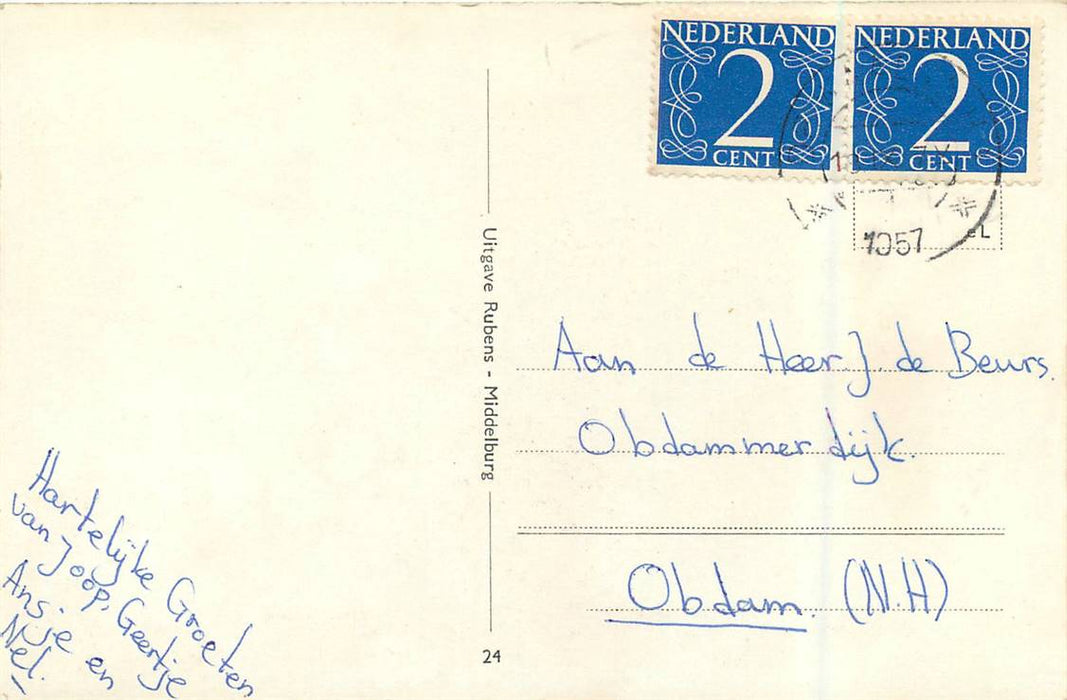 NEDERLAND
2
CENT
NEDERLAND
2
CENT
1957
Uitgave Rubens - Middelburg
Aan de Heer J. de Beurs.
Obdammerdijk.
Obdam. (N.H)
Hartelijke Groeten
van Joop, Geertje
Ansje en
Nel.
24